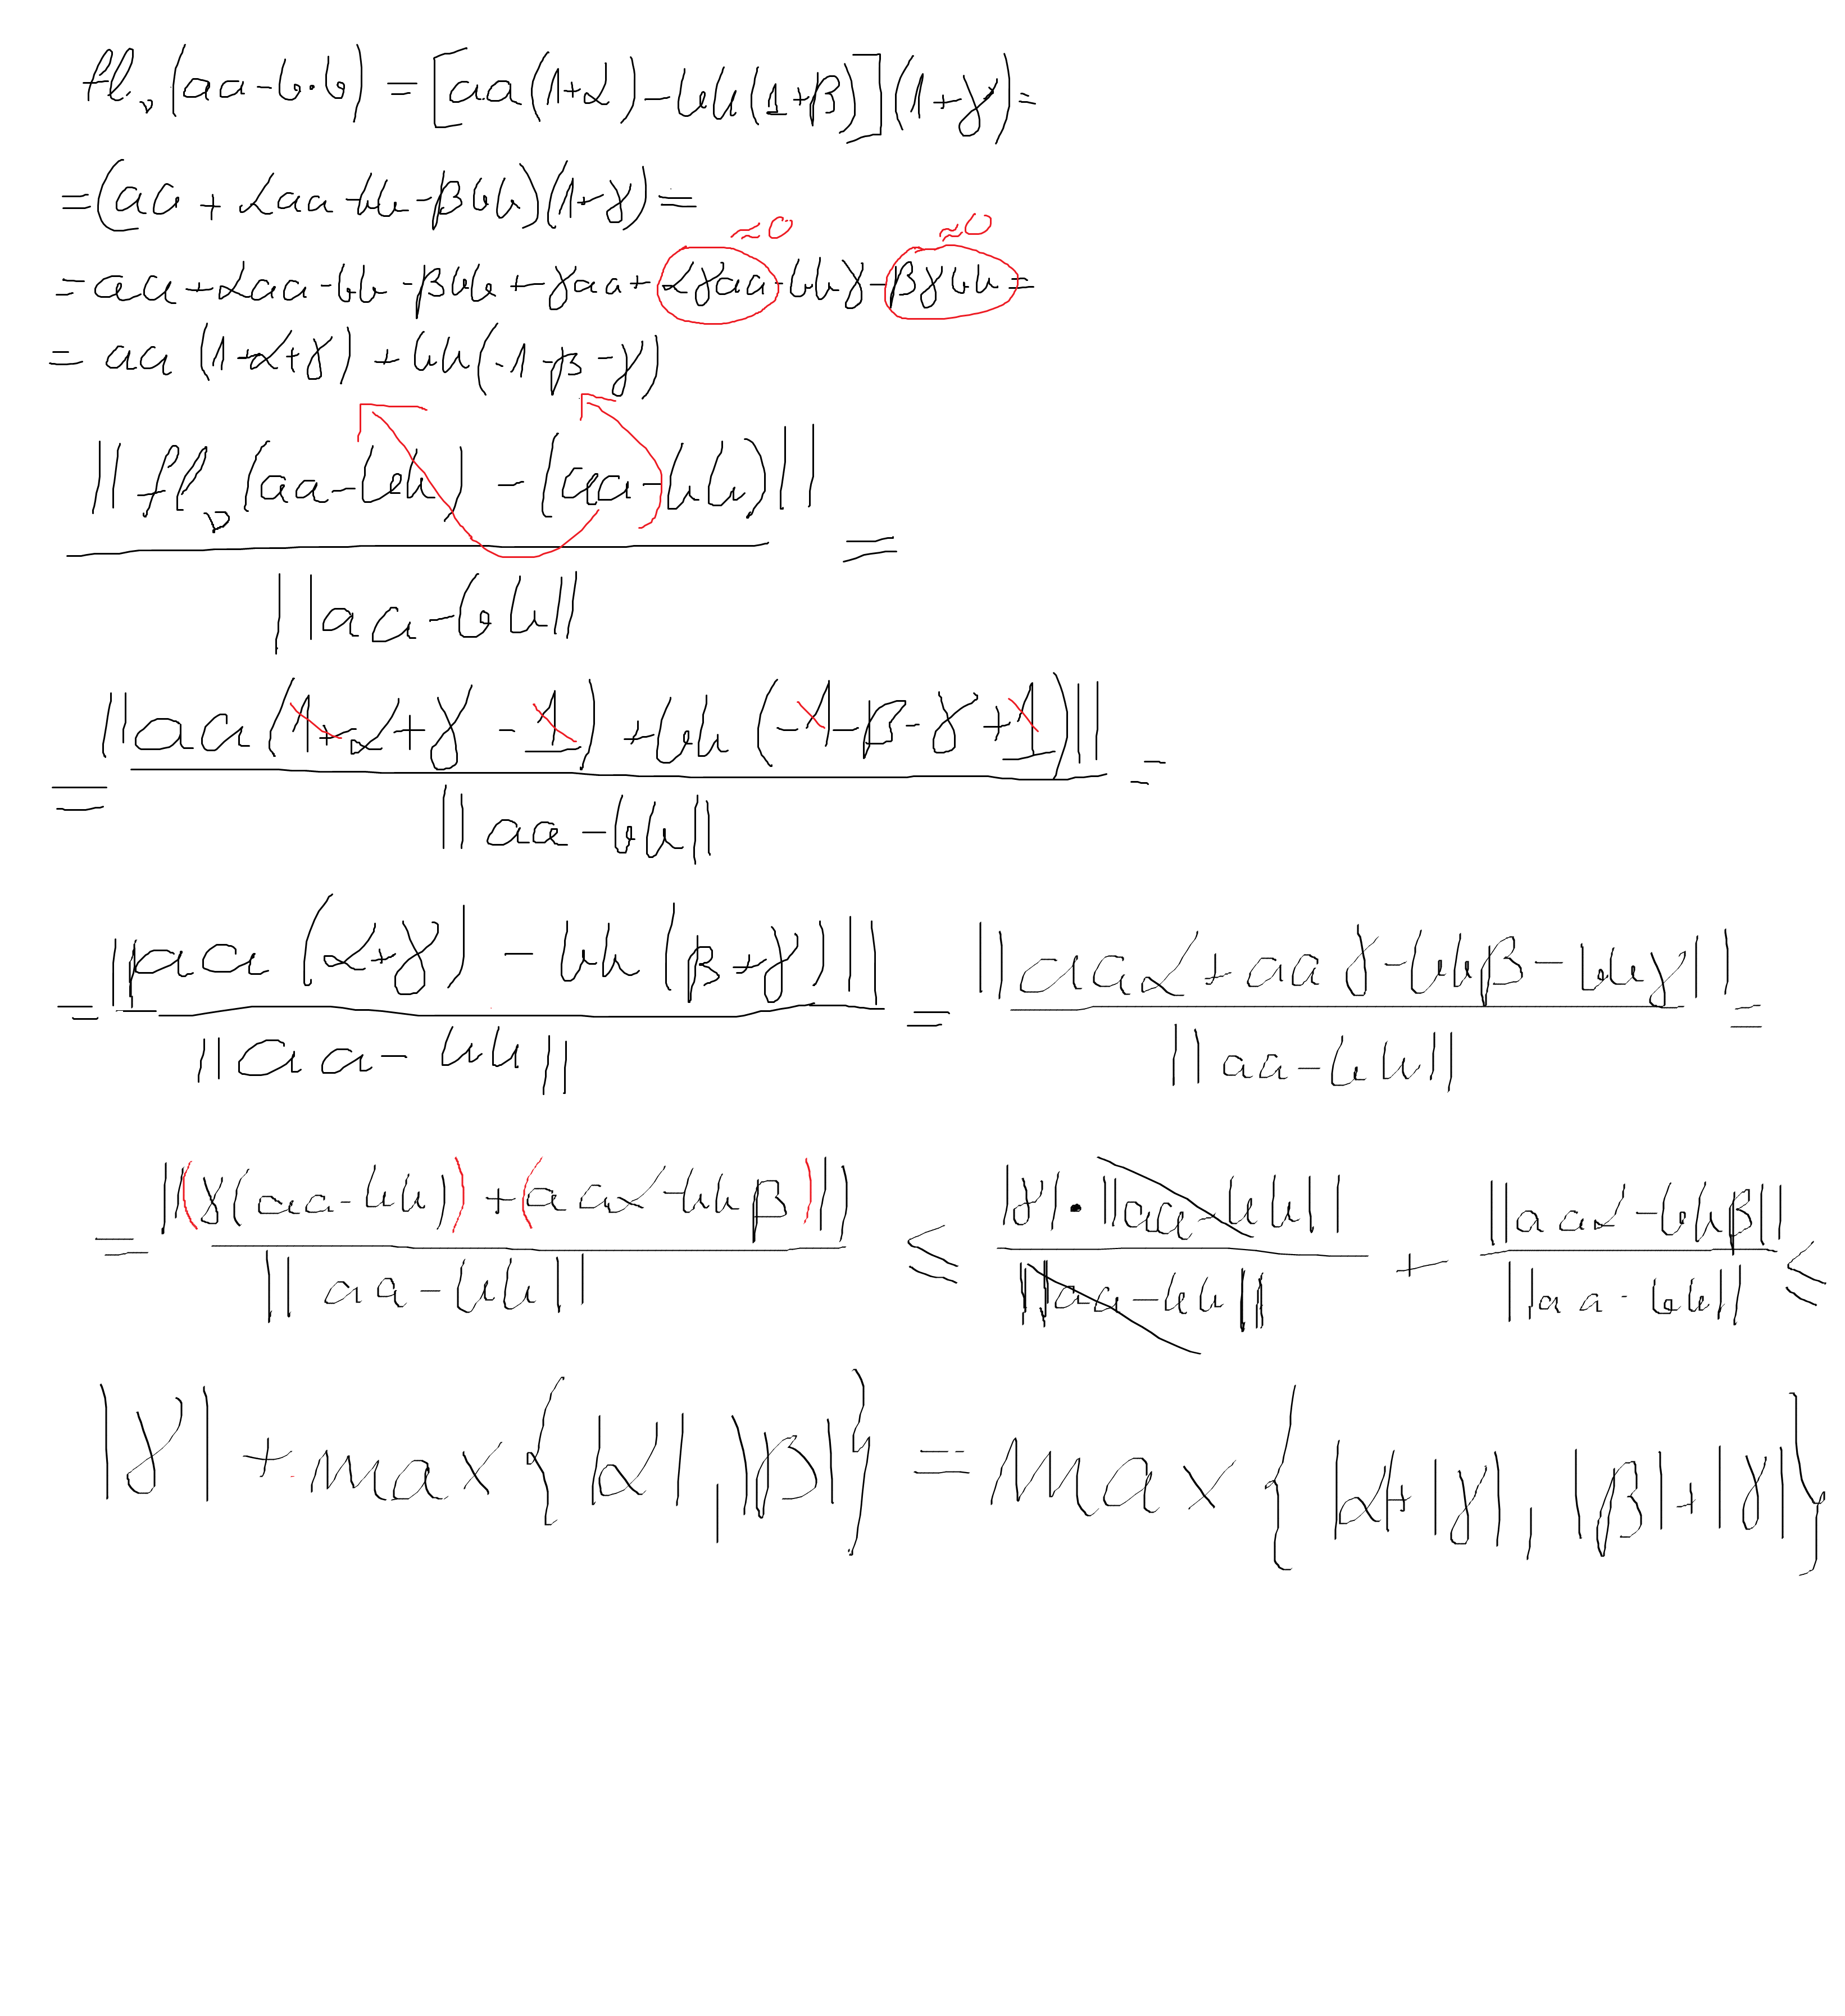 fl_ν(aa-b·b) = [aa(1+α) - bb(1+β)](1+γ) =
= (aa + αaa - bb - βbb)(1+γ) =
≈0 ≈0
= aa + αaa - bb - βbb + γaa + αγaa - bbγ - βγbb =
= aa (1+α+γ) + bb(-1-β-γ)
||fl_ν(aa-bb) - (aa-bb)||
=
||aa-bb||
||aa(1+α+γ-1) + bb(-1-β-γ+1)||
= =
||aa-bb||
||aa(α+γ) - bb(β+γ)|| ||aaα+aaγ-bbβ-bbγ||
= = =
||aa-bb|| ||aa-bb||
||(γ(aa-bb)) + (aaα-bbβ)|| |γ|·||aa-bb|| ||aaα-bbβ||
= ≤ + ≤
||aa-bb|| ||aa-bb|| ||aa-bb||
|γ| + max{|α|,|β|} = max{|α|+|γ|, |β|+|γ|}